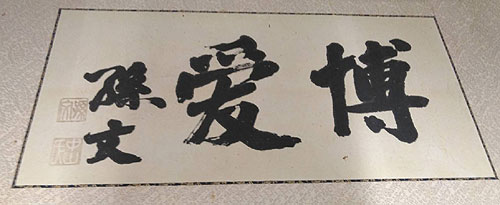 博爱
孫文